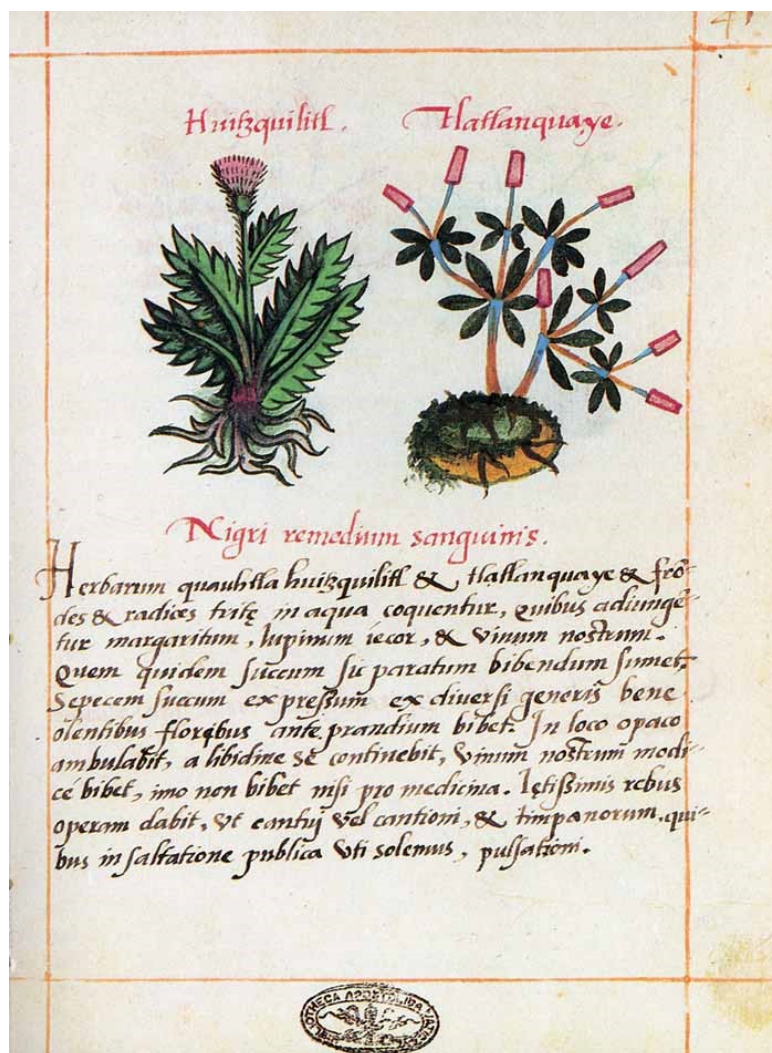 41
Huitzquilitl. Tlatlanquaye.
Nigri remedium sanguinis.
Herbarum quauhtla huitzquilitl & tlatlanquaye & frō-
des & radices tritę in aqua coquentur, quibus adiungē-
tur margaritum, lupinum iecor, & vinum nostrum.
Quem quidem succum sic paratum bibendum sumet.
Sepecem succum expressum ex diversi generis bene
olentibus floribus ante prandium bibet. In loco opaco
ambulabit, a libidine se continebit, vinum nostrum modi-
cé bibet, imo non bibet nisi pro medicina. Lętissimis rebus
operam dabit, vt cantui vel cantioni, & timpanorum, qui-
bus in saltatione publica vti solemus, pulsationi.
BIBLIOTHECA APOSTOLICA VATICANA